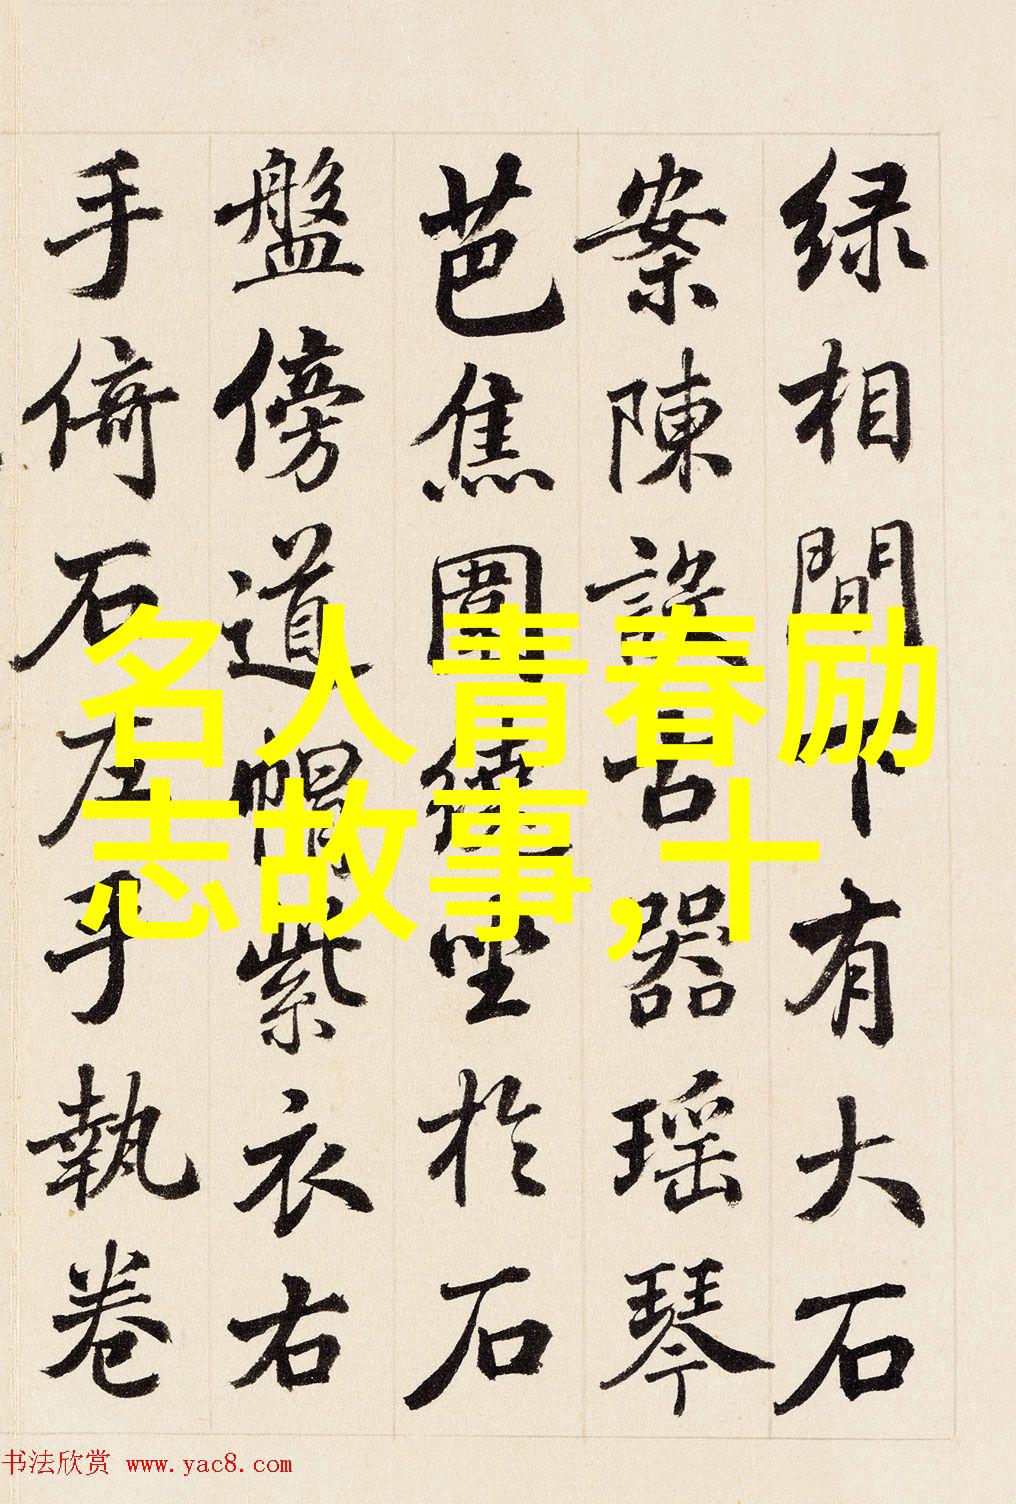 绿相間下有大石
案陳設古器瑶琴
芭焦圍繞坐於石
盤傍道帽紫衣右
手倚石左手執卷
名人青春励
志故事,十
书法欣赏 www.yac8.com